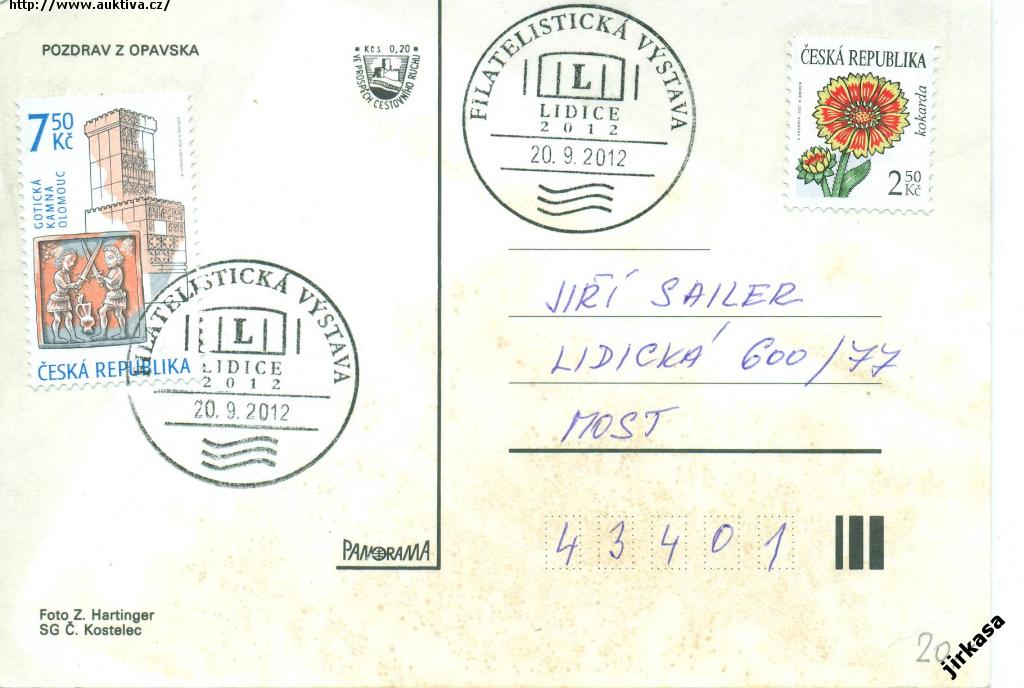 http://www.auktiva.cz/
POZDRAV Z OPAVSKA
Kčs 0,20
VE PROSPĚCH CESTOVNÍHO RUCHU
FILATELISTICKÁ VÝSTAVA
L
LIDICE
2012
20.9.2012
ČESKÁ REPUBLIKA
kokarda
2 50
Kč
7 50
Kč
GOTICKÁ
KAMNA
OLOMOUC
ČESKÁ REPUBLIKA
FILATELISTICKÁ VÝSTAVA
L
LIDICE
2012
20.9.2012
JIŘÍ SAILER
LIDICKÁ 600/77
MOST
43401
PANORAMA
Foto Z. Hartinger
SG Č. Kostelec
20
jirkasa